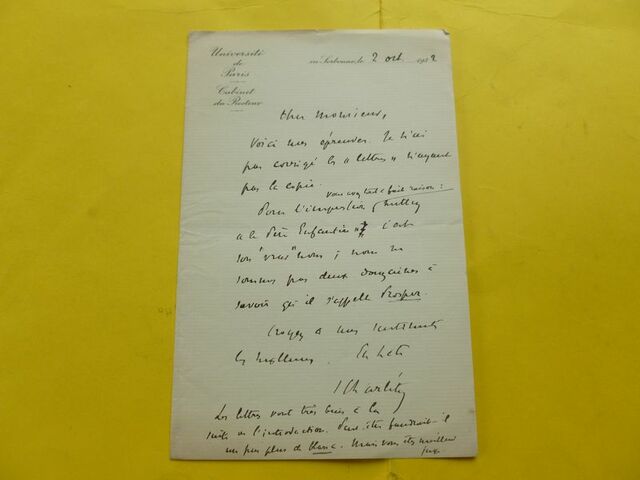 Université
de
Paris
Cabinet
du Recteur
en Sorbonne, le 2 oct. 1932
Cher Monsieur,
Voici mes épreuves. Je n'ai
pas corrigé les "lettres" n'ayant
pas la copie.
vous avez tout à fait raison :
Pour l'impression
a le Père Enfantin c'est
son "vrai" nom ; nous ne
sommes pas deux douzaines à
savoir qu'il s'appelle Prosper.
Croyez à mes sentiments
les meilleurs. En hâte
S Charléty
Les lettres vont très bien à la
suite de l'introduction. Peut-être faudrait-il
un peu plus de blanc. Mais vous êtes meilleur
juge.